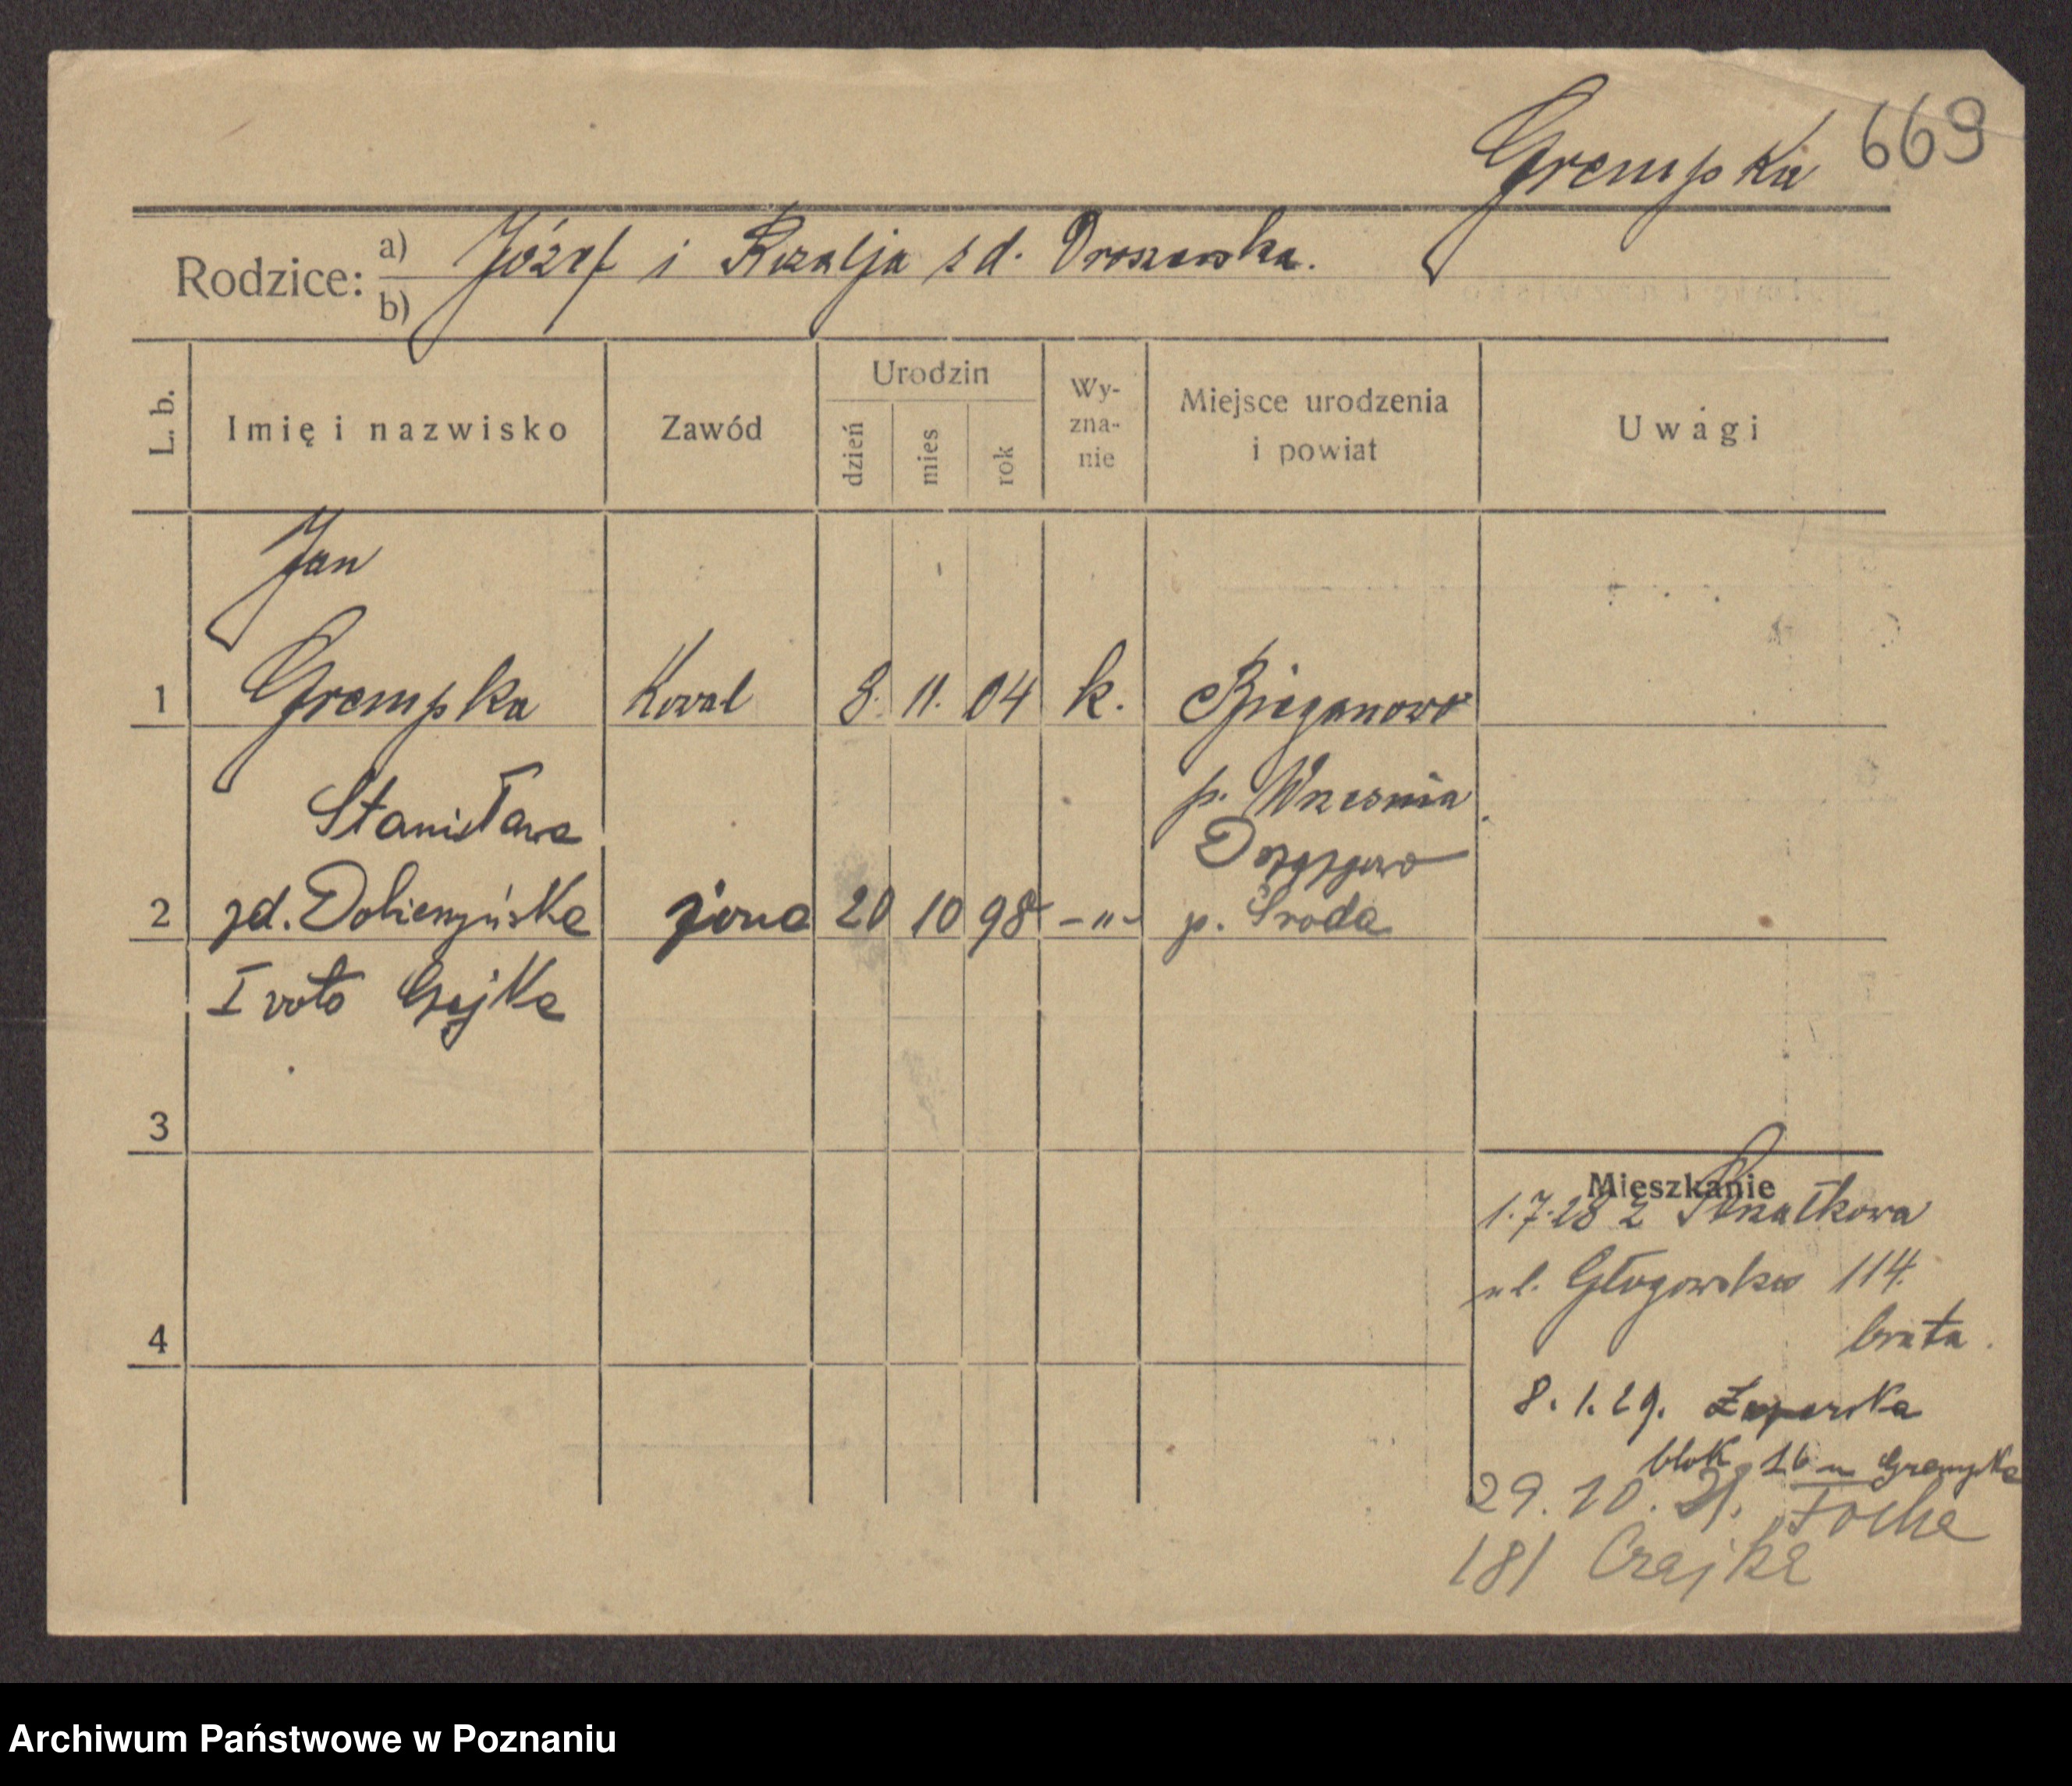 Grempka 669
Rodzice: a) Józef i Rozalja z d. Droszewska.
b)
L. b. Imię i nazwisko Zawód Urodzin dzień mies rok Wy-zna-nie Miejsce urodzenia i powiat Uwagi
Jan
1 Grempka Kowal 8. 11. 04 k. Bieganowo
p. Wrzesnia
Stanisława
2 zd. żona 20 10 98 -"- p. Sroda
I voto Czajka
3
Mieszkanie
1.7.28 z
ul. Głogowska 114.
4
brata.
8.1.29.
blok 16 u Grempka
29.10. Focha
181 Czajka
Archiwum Państwowe w Poznaniu